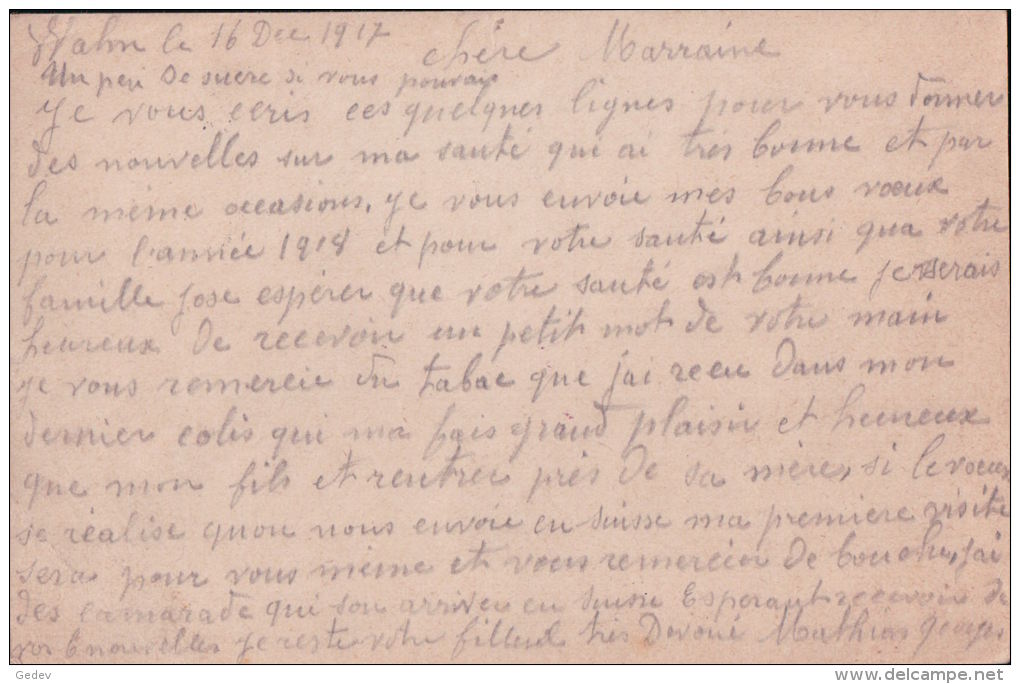 Wahn le 16 Dec 1917
chère Marraine
Un peu de sucre si vous pouvais
Je vous ecris ces quelques lignes pour vous donner
des nouvelles sur ma santé qui ai très bonne et par
la même occasions. je vous envoie mes bons vœux
pour l'année 1918 et pour votre santé ainsi qua votre
famille jose espérer que votre santé est bonne je serais
heureux de recevoir un petit mot de votre main
je vous remercie du tabac que j'ai recu dans mon
dernier colis qui ma fais grand plaisir et heureux
que mon fils et rentrer près de sa mère, si le vœux
se réalise quon nous envoie en suisse ma première visite
sera pour vous même et vous remercier de bouche, j'ai
des camarade qui son arriver en suisse Esperant recevoir de
vos nouvelles je reste votre filleul très Devoué Mathias Georges
Gedev
www.delcampe.net